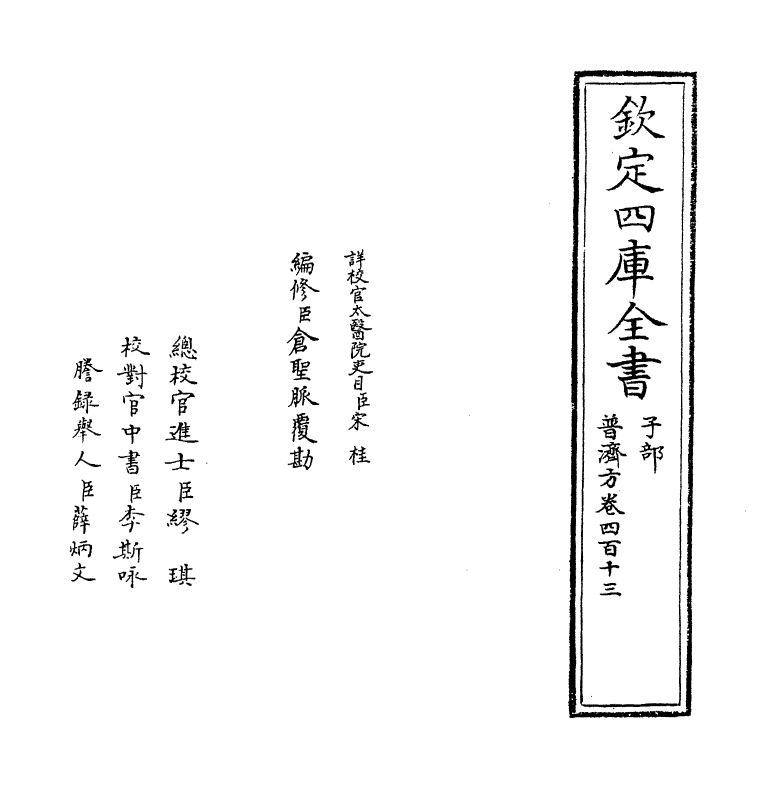 欽定四庫全書
子部
普濟方卷四百十三
詳校官太醫院吏目臣宋桂
編修臣倉聖脈覆勘
總校官進士臣繆琪
校對官中書臣李斯咏
謄録舉人臣薛炳文